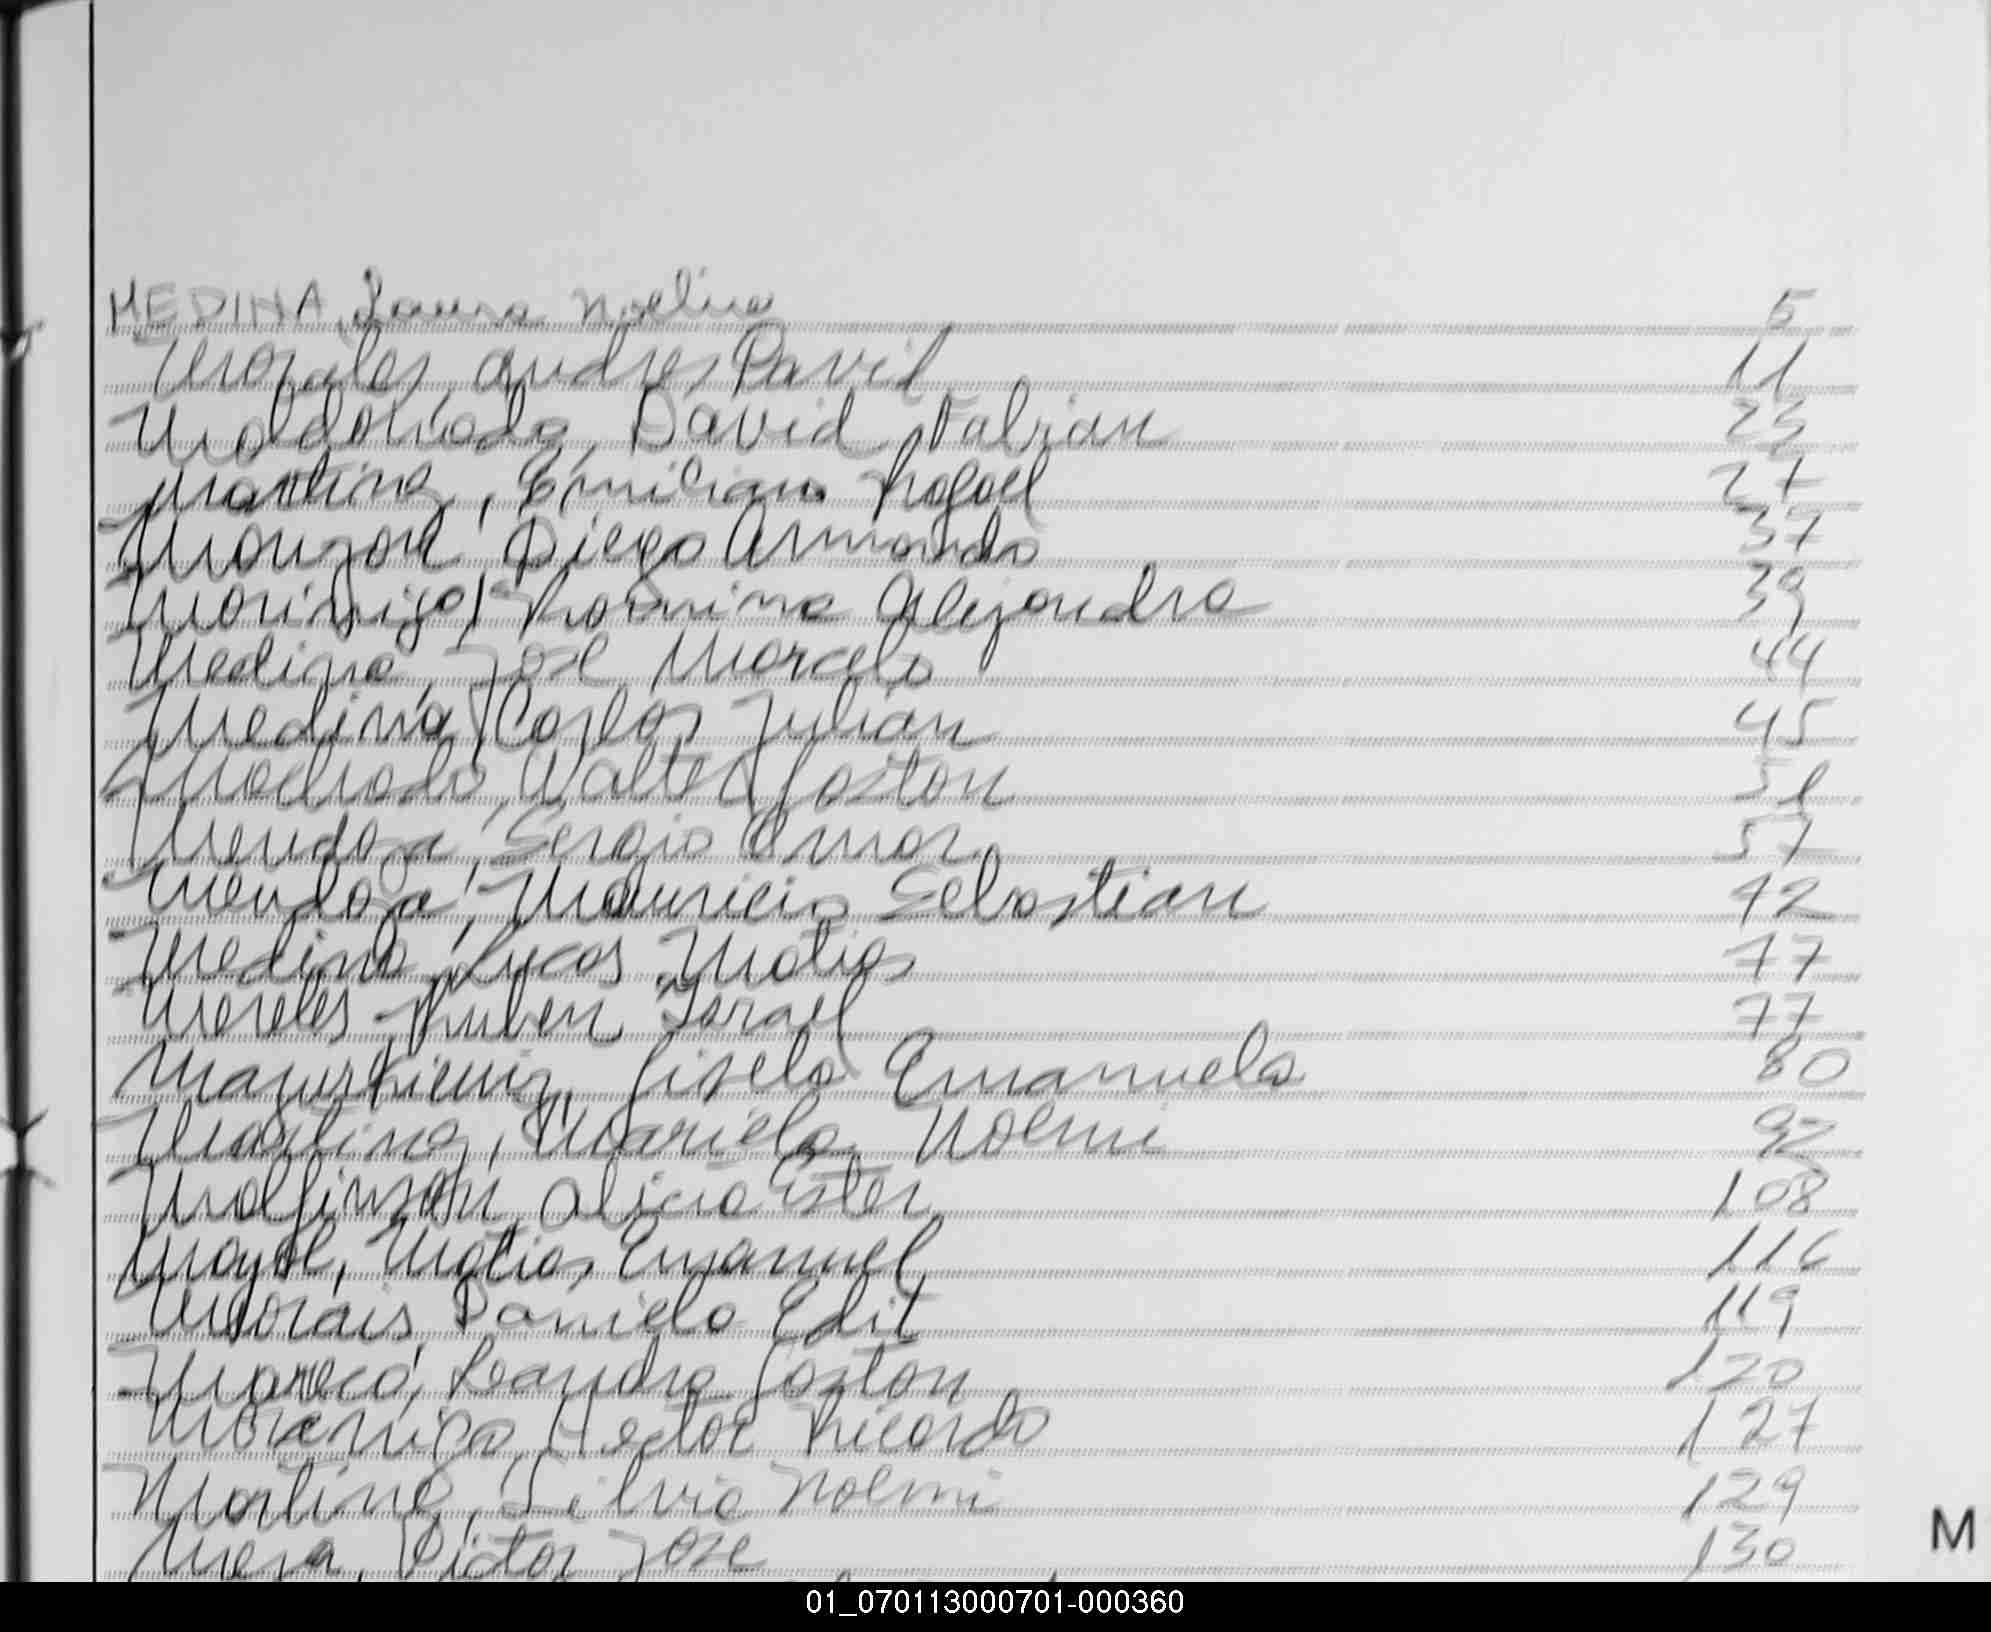 MEDINA, Laura Noelia 5
Morales, Andres David 11
Maldonado, David Fabian 23
Martinez, Emiliano Rafael 27
Monzon, Diego Armando 37
Romina Alejandra 39
Medina, Jose Marcelo 44
Medina, Carlos Julian 45
Machado, Walter Gaston 51
Mendoza, Sergio Omar 57
Mendoza, Mauricio Sebastian 72
Medina, Lucas Matias 77
Mereles Ruben Israel 77
Gisela Emanuela 80
Martinez, Mariela Noemi 92
Alicia Ester 108
Mayol, Matias Emanuel 116
Morais, Daniela Edit 119
Mareco, Leandro Gaston 120
Hector Ricardo 127
Martinez, Silvia Noemi 129
Meza, Victor Jose 130
M
01_070113000701-000360